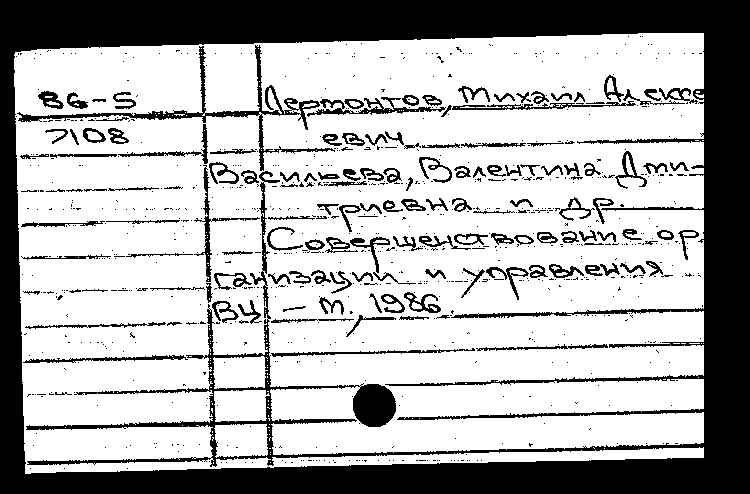 86-5 Лермонтов, Михаил Алексе
7108 евич
Васильева, Валентина Дми-
триевна и др.
Совершенствование ор
ганизации и управления
ВЦ. – М., 1986.